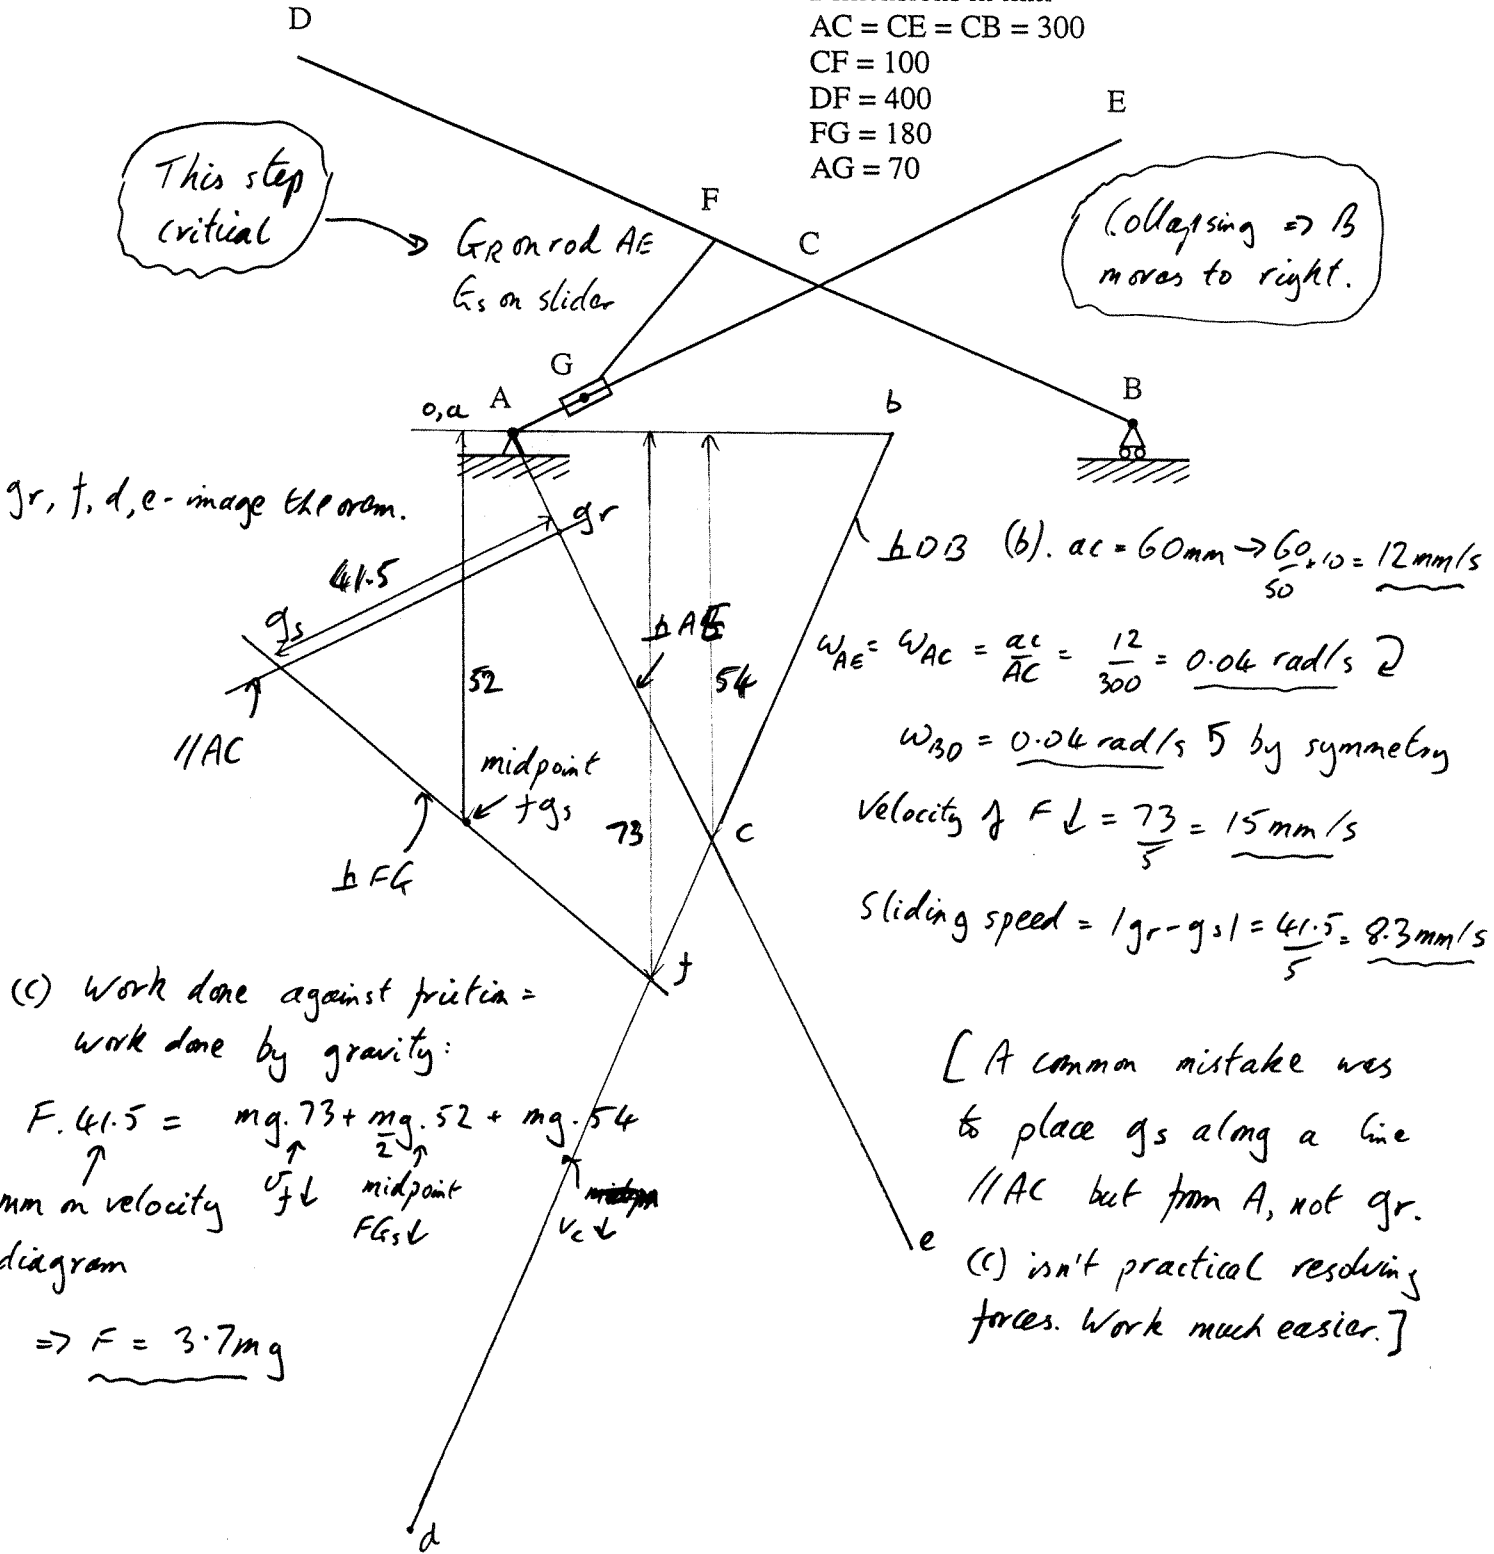 D
AC = CE = CB = 300
CF = 100
DF = 400
FG = 180
AG = 70
E
This step
critical
F
C
G_R on rod AE
G_s on slider
Collapsing => B
moves to right.
G
A
B
o,a
b
gr, f, d, e - image theorem.
gr
41.5
gs
⊥DB
(b). ac = 60mm → 60/50 × 10 = 12mm/s
⊥AE
52
54
ω_AE = ω_AC = ac/AC = 12/300 = 0.04 rad/s ↻
//AC
ω_BD = 0.04 rad/s ↺ by symmetry
midpoint
fgs
73
c
Velocity of F ↓ = 73/5 = 15mm/s
⊥FG
Sliding speed = |gr-gs| = 41.5/5 = 8.3mm/s
f
(c) Work done against friction =
work done by gravity:
F. 41.5 = mg.73 + mg/2.52 + mg.54
↑ mm on velocity
diagram
v_f↓
midpoint
FGs↓
v_c↓
=> F = 3.7mg
e
d
[ A common mistake was
to place gs along a line
//AC but from A, not gr.
(c) isn't practical resolving
forces. Work much easier.]